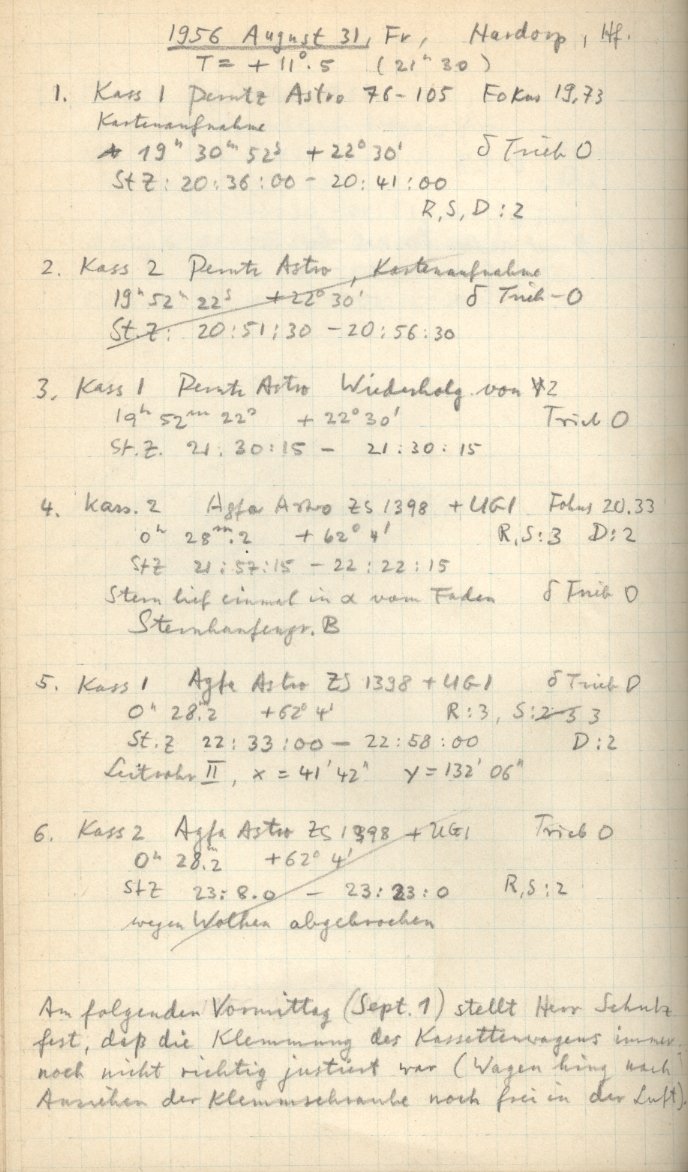 1956 August 31, Fr, Hardorp, Hf.
T = + 11°.5 (21ʰ 30)
1. Kass 1 Perutz Astro 76-105 Fokus 19,73
Kartenaufnahme
19ʰ 30ᵐ 52ˢ +22° 30' δ Trieb O
StZ: 20:36:00 - 20:41:00
R,S,D:2
2. Kass 2 Perutz Astro, Kartenaufnahme
19ʰ 52ᵐ 22ˢ +22° 30' δ Trieb-O
St.Z: 20:51:30 - 20:56:30
3. Kass 1 Perutz Astro Wiederholg. von 2
19ʰ 52ᵐ 22ˢ +22° 30' Trieb O
St.Z. 21:30:15 - 21:30:15
4. Kass. 2 Agfa Astro ZS 1398 + UG1 Fokus 20.33
0ʰ 28ᵐ.2 +62° 4' R,S:3 D:2
StZ 21:57:15 - 22:22:15
Stern lief einmal in α vom Faden δ Trieb O
Sternhaufengr. B
5. Kass 1 Agfa Astro ZS 1398 + UG1 δ Trieb O
0ʰ 28.2 +62° 4' R:3, S:2-3 3
St.Z 22:33:00 - 22:58:00 D:2
Leitrohr II, x = 41' 42" y = 132' 06"
6. Kass 2 Agfa Astro ZS 1398 + UG1 Trieb O
0ʰ 28.2 +62° 4'
StZ 23:8.0 - 23:23:0 R,S:2
wegen Wolken abgebrochen
Am folgenden Vormittag (Sept. 1) stellt Herr Schulz
fest, daß die Klemmung des Kassettenwagens immer
noch nicht richtig justiert war (Wagen hing nach
Anziehen der Klemmschraube noch frei in der Luft).